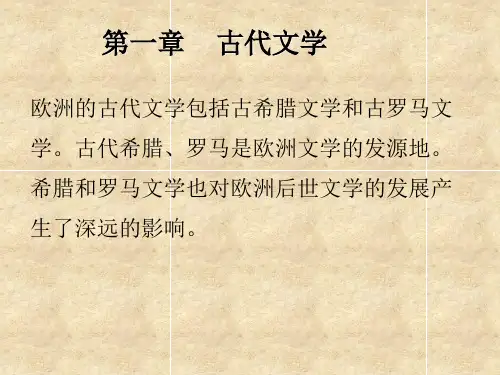 第一章 古代文学
欧洲的古代文学包括古希腊文学和古罗马文
学。古代希腊、罗马是欧洲文学的发源地。
希腊和罗马文学也对欧洲后世文学的发展产
生了深远的影响。